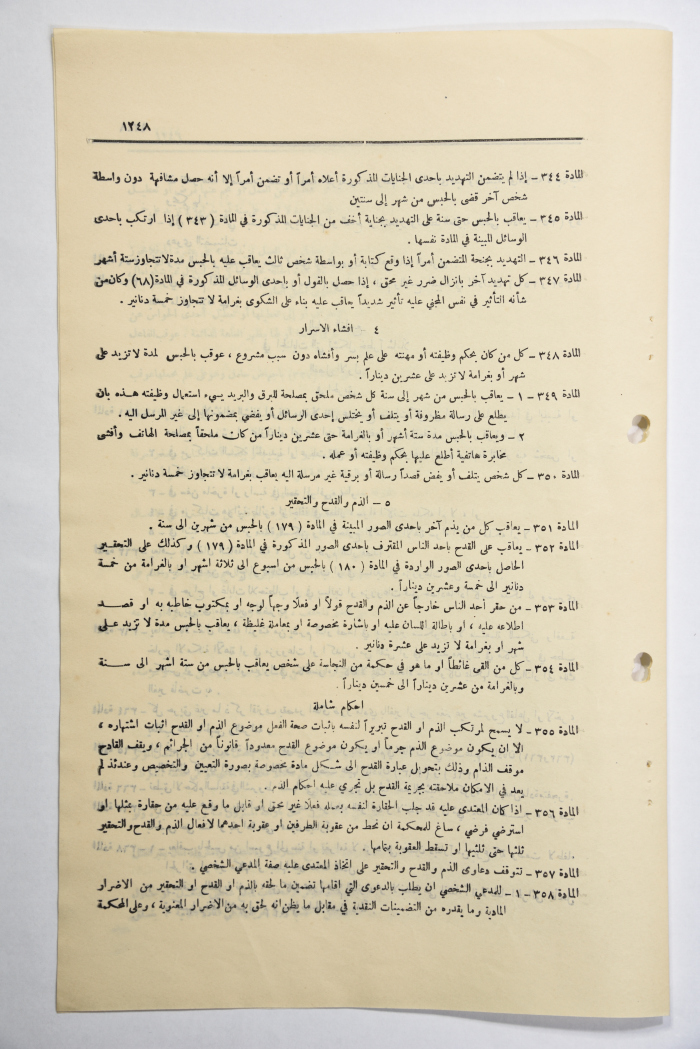 ١٢٤٨
المادة ٣٤٤ – إذا لم يتضمن التهديد باحدى الجنايات المذكورة أعلاه أمراً أو تضمن أمراً إلا أنه حصل مشافهة دون واسطة
شخص آخر قضى بالحبس من شهر إلى سنتين
المادة ٣٤٥ – يعاقب بالحبس حتى سنة على التهديد بجناية أخف من الجنايات المذكورة في المادة ( ٣٤٣ ) إذا ارتكب باحدى
الوسائل المبينة في المادة نفسها .
المادة ٣٤٦ – التهديد بجنحة المتضمن أمراً إذا وقع كتابة أو بواسطة شخص ثالث يعاقب عليه بالحبس مدة لاتتجاوز ستة أشهر
المادة ٣٤٧ – كل تهديد آخر بانزال ضرر غير محق ، إذا حصل بالقول أو باحدى الوسائل المذكورة في المادة (٦٨) وكان من
شأنه التأثير في نفس المجني عليه تأثير شديداً يعاقب عليه بناء على الشكوى بغرامة لا تتجاوز خمسة دنانير .
٤ – افشاء الاسرار
المادة ٣٤٨ – كل من كان بحكم وظيفته أو مهنته على علم بسر وأفشاه دون سبب مشروع ، عوقب بالحبس لمدة لا تزيد على
شهر أو بغرامة لا تزيد على عشرين ديناراً .
المادة ٣٤٩ – ١ – يعاقب بالحبس من شهر إلى سنة كل شخص ملحق بمصلحة للبرق والبريد يسيء استعمال وظيفته هذه بان
يطلع على رسالة مظروفة أو يتلف أو يختلس إحدى الرسائل أو يفضي بمضمونها إلى غير المرسل اليه .
٢ – ويعاقب بالحبس مدة ستة أشهر أو بالغرامة حتى عشرين ديناراً من كان ملحقاً بمصلحة الهاتف وأفشى
مخابرة هاتفية أطلع عليها بحكم وظيفته أو عمله .
المادة ٣٥٠ – كل شخص يتلف أو يفض قصداً رسالة أو برقية غير مرسلة اليه يعاقب بغرامة لا تتجاوز خمسة دنانير .
٥ – الذم والقدح والتحقير
المادة ٣٥١ – يعاقب كل من يذم آخر باحدى الصور المبينة في المادة ( ١٧٩ ) بالحبس من شهرين الى سنة .
المادة ٣٥٢ – يعاقب على القدح باحد الناس المقترف باحدى الصور المذكورة في المادة ( ١٧٩ ) وكذلك على التحقير
الحاصل باحدى الصور الواردة في المادة ( ١٨٠ ) بالحبس من اسبوع الى ثلاثة اشهر او بالغرامة من خمسة
دنانير الى خمسة وعشرين ديناراً .
المادة ٣٥٣ – من حقر أحد الناس خارجاً عن الذم والقدح قولاً او فعلاً وجهاً لوجه او بمكتوب خاطبه به او قصد
اطلاعه عليه ، او باطالة اللسان عليه او باشارة مخصوصة او بمعاملة غليظة ، يعاقب بالحبس مدة لا تزيد على
شهر او بغرامة لا تزيد على عشرة دنانير .
المادة ٣٥٤ – كل من القى غائطاً او ما هو في حكمه من النجاسة على شخص يعاقب بالحبس من ستة اشهر الى سنة
وبالغرامة من عشرين ديناراً الى خمسين ديناراً .
احكام شاملة
المادة ٣٥٥ – لا يسمح لمرتكب الذم او القدح تبريراً لنفسه باثبات صحة الفعل موضوع الذم او القدح اثبات اشتهاره ،
الا ان يكون موضوع الذم جرماً او يكون موضوع القدح معدوداً قانوناً من الجرائم ، ويقف القادح
موقف الذام وذلك بتحويل عبارة القدح الى شكل مادة مخصوصة بصورة التعيين والتخصيص وعندئذ لم
يعد في الامكان ملاحقته بجريمة القدح بل تجري عليه احكام الذم .
المادة ٣٥٦ – اذا كان المعتدى عليه قد جلب الحقارة لنفسه بعمله فعلاً غير محق او قابل ما وقع عليه من حقارة بمثلها او
استرضي فرضي ، ساغ للمحكمة ان تحط من عقوبة الطرفين او عقوبة احدهما لافعال الذم والقدح والتحقير
ثلثها حتى ثلثيها او تسقط العقوبة بتمامها .
المادة ٣٥٧ – تتوقف دعاوى الذم والقدح والتحقير على اتخاذ المعتدى عليه صفة المدعي الشخصي .
المادة ٣٥٨ – ١ – للمدعي الشخصي ان يطلب بالدعوى التي اقامها تضمين ما لحقه بالذم او القدح او التحقير من الاضرار
المادية وما يقدره من التضمينات النقدية في مقابل ما يظن انه لحق به من الاضرار المعنوية ، وعلى المحكمة